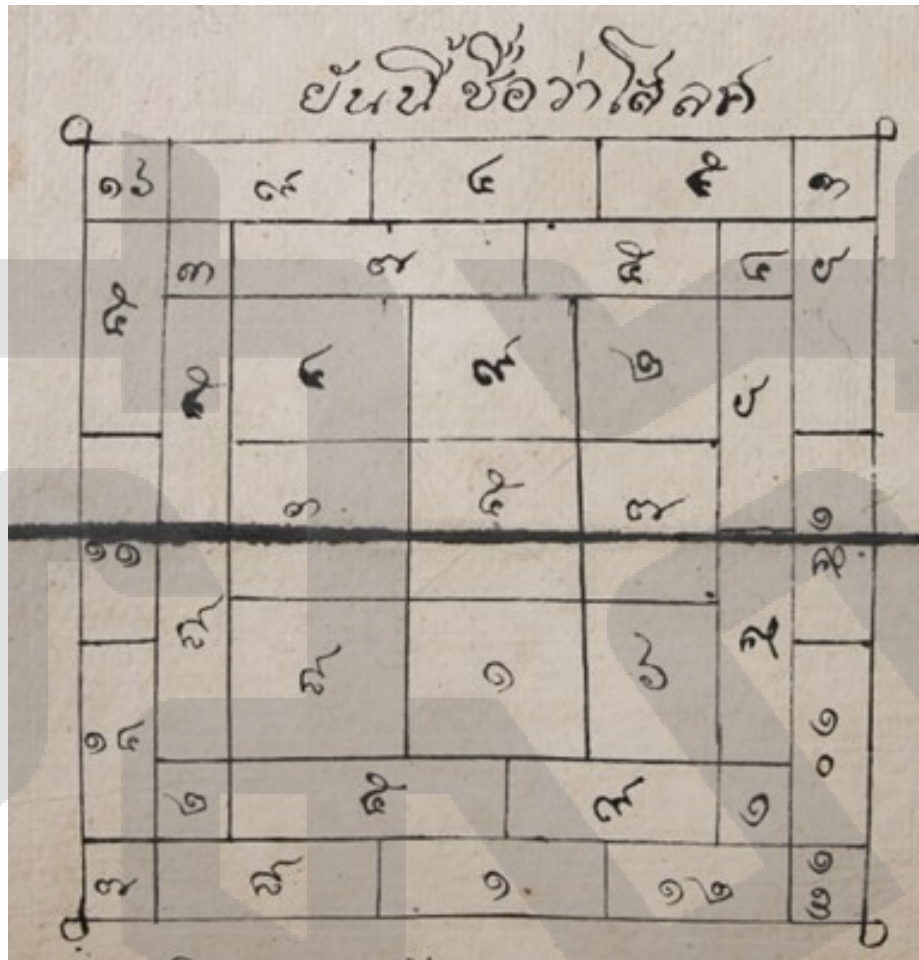 ยันนี้ ชื่อว่าโสลศ
๑๖ ๙ ๔ ๕ ๓
๕ ๓ ๗ ๕ ๔ ๖
๕ ๔ ๙ ๒ ๖
๓ ๕ ๗
๑๑ ๑๕
๘ ๘ ๑ ๖ ๙
๑๔ ๑๐
๒ ๕ ๙ ๑
๗ ๘ ๑ ๑๒ ๑๓